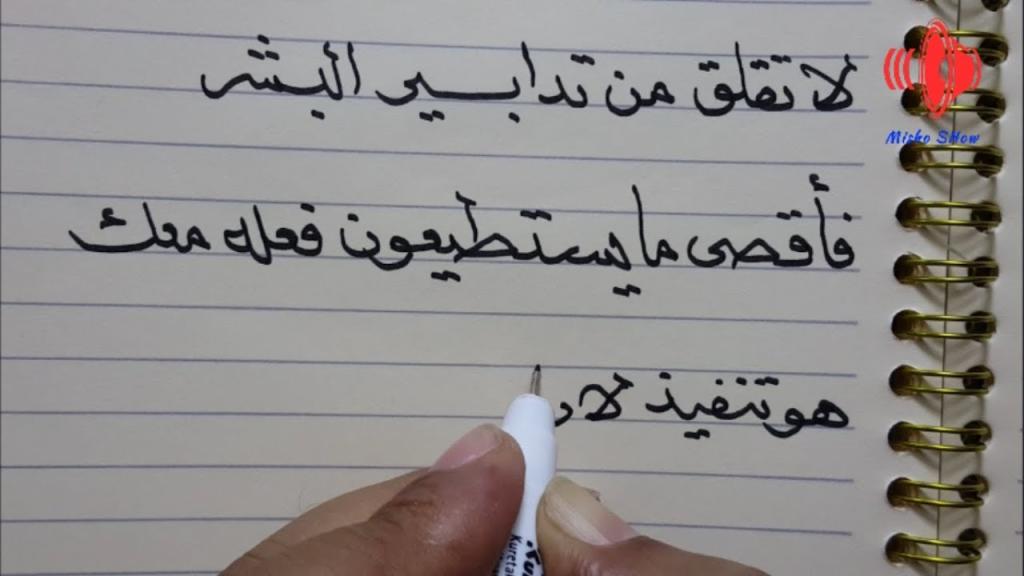 لا تقلق من تدابير البشر
فأقصى ما يستطيعون فعله معك
هو تنفيذ لار
Misho SHow